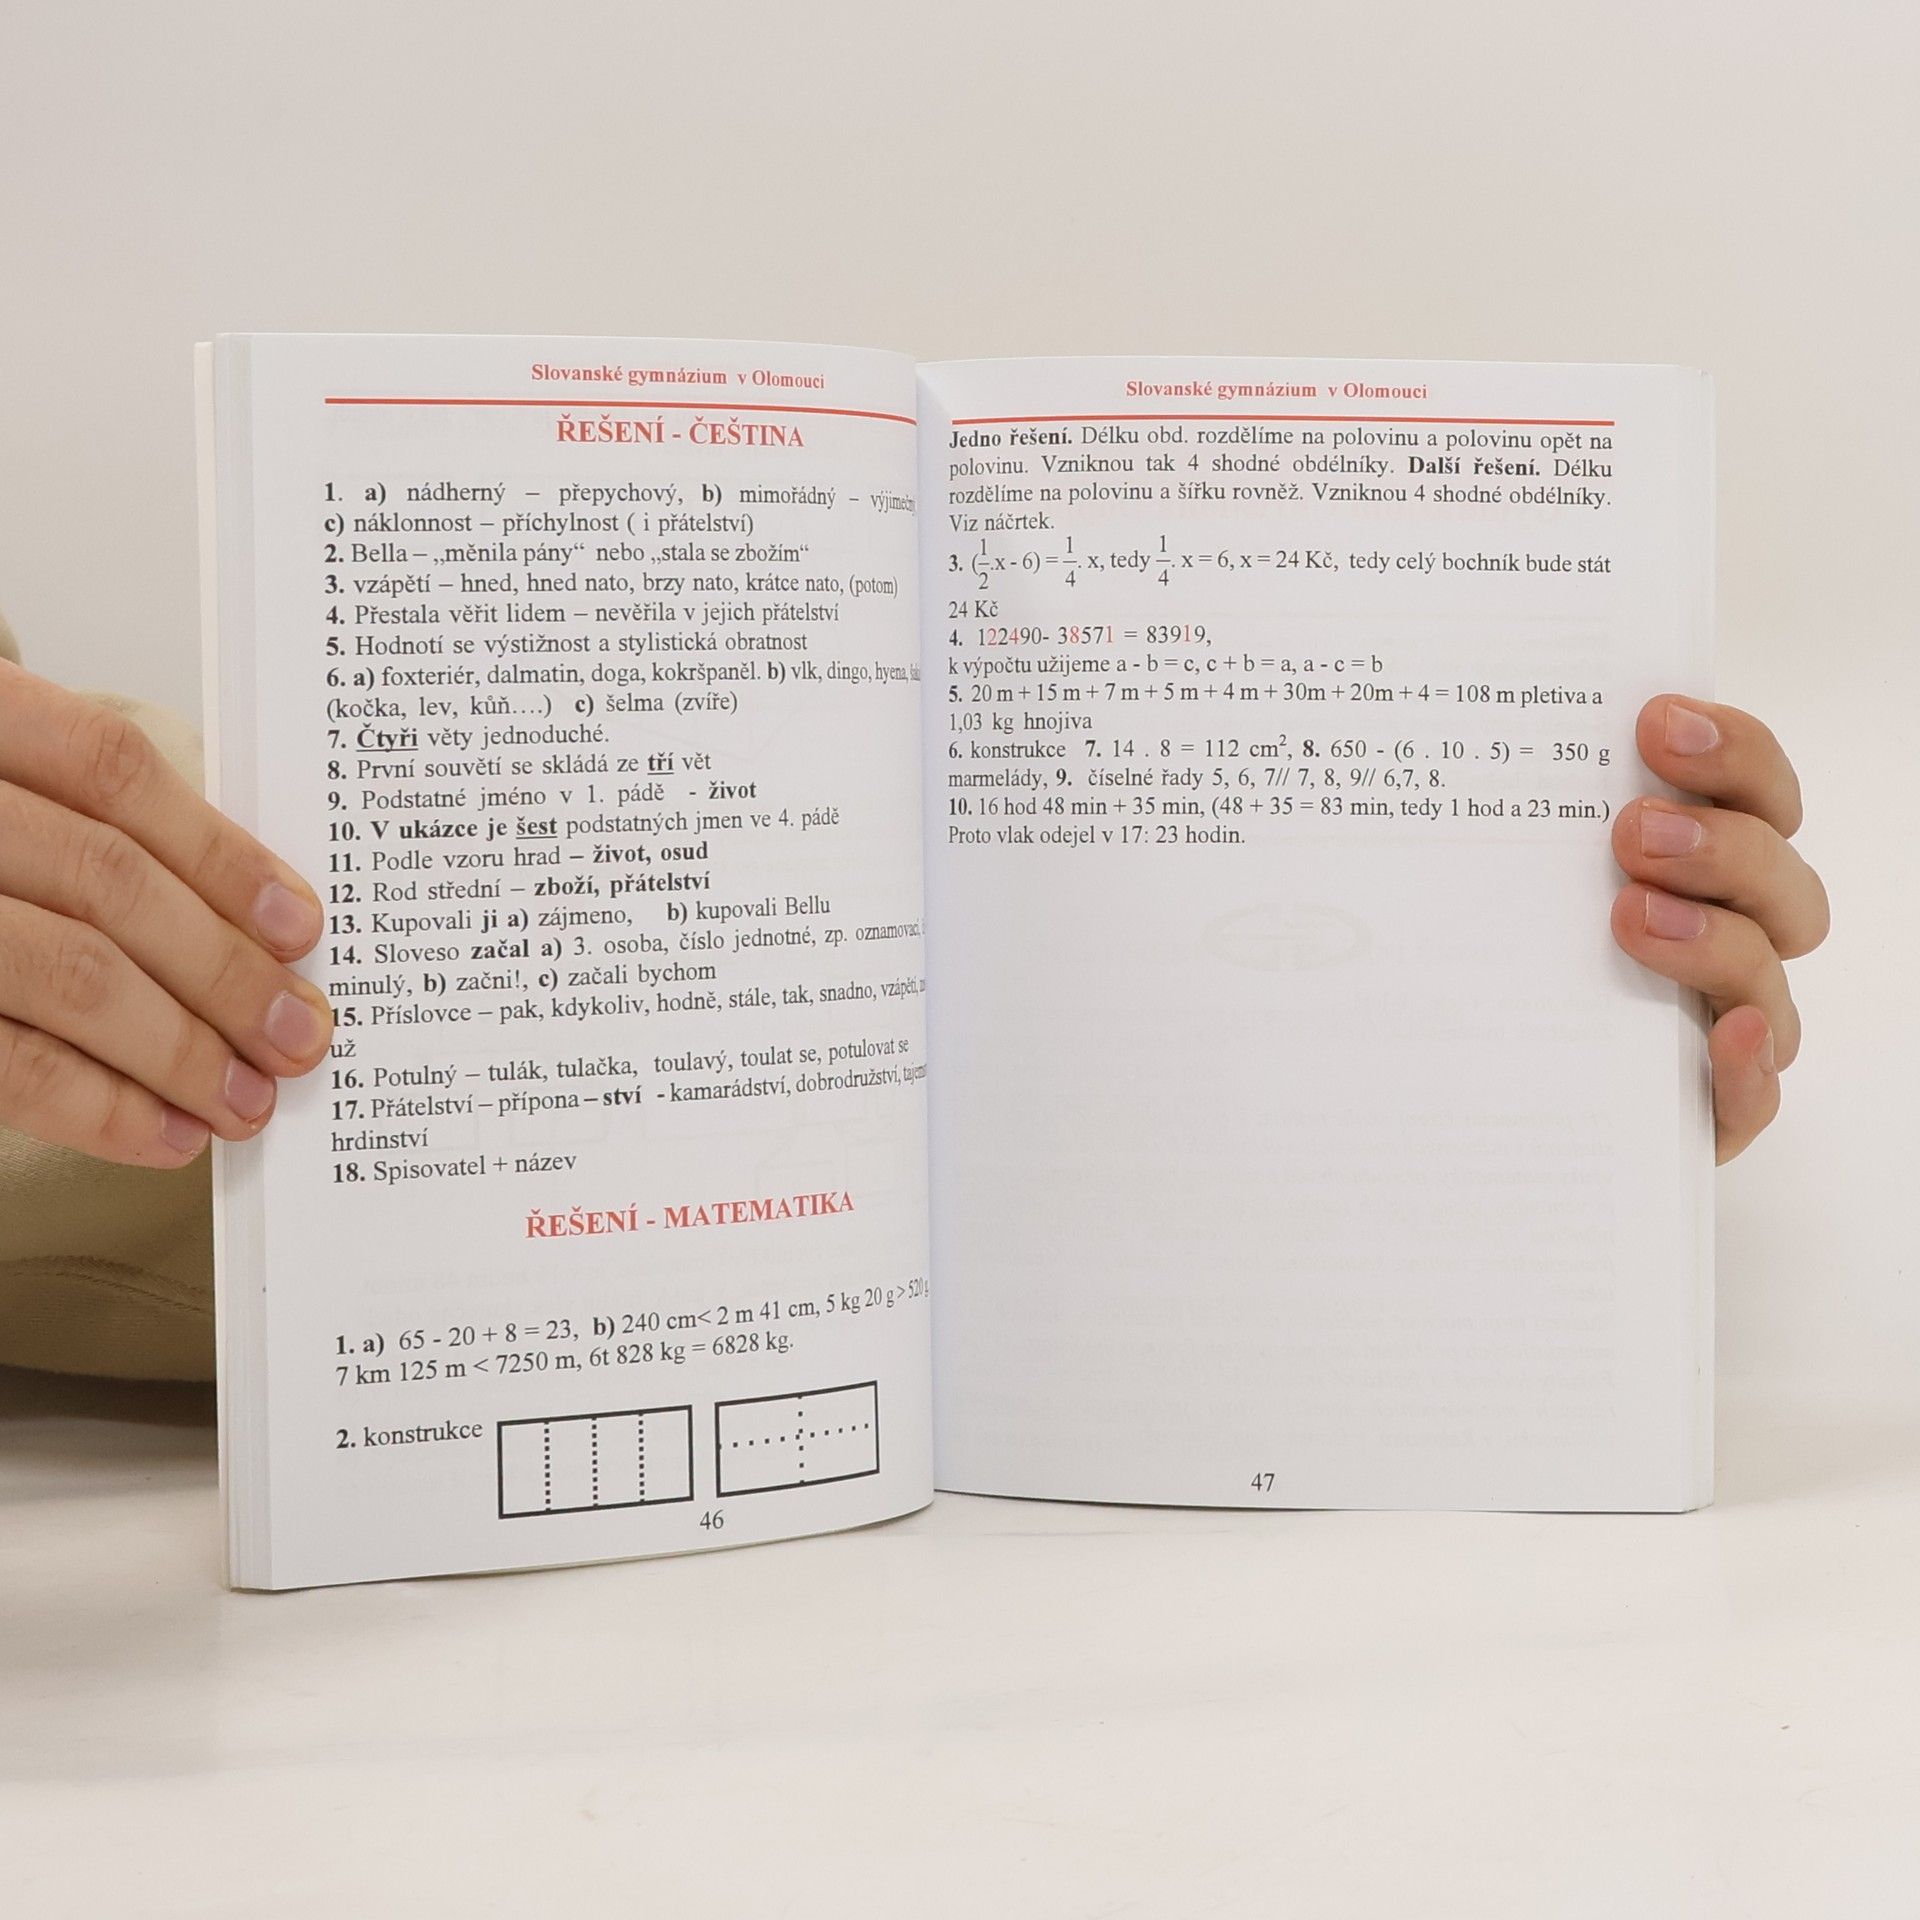 Slovanské gymnázium v Olomouci
ŘEŠENÍ - ČEŠTINA
1. a) nádherný – přepychový, b) mimořádný –
c) náklonnost – příchylnost ( i přátelství)
2. Bella – „měnila pány“ nebo „stala se zbožím“
3. vzápětí – hned, hned nato, brzy nato, krátce nato, (potom)
4. Přestala věřit lidem – nevěřila v jejich přátelství
5. Hodnotí se výstižnost a stylistická obratnost
6. a) foxteriér, dalmatin, doga, kokršpaněl. b) vlk, dingo, hyena,
(kočka, lev, kůň….) c) šelma (zvíře)
7. Čtyři věty jednoduché.
8. První souvětí se skládá ze tří vět
9. Podstatné jméno v 1. pádě - život
10. V ukázce je šest podstatných jmen ve 4. pádě
11. Podle vzoru hrad – život, osud
12. Rod střední – zboží, přátelství
13. Kupovali ji a) zájmeno, b) kupovali Bellu
14. Sloveso začal a) 3. osoba, číslo jednotné, zp. oznamovací,
minulý, b) začni!, c) začali bychom
15. Příslovce – pak, kdykoliv, hodně, stále, tak, snadno, vzápětí,
už
16. Potulný – tulák, tulačka, toulavý, toulat se, potulovat se
17. Přátelství – přípona – ství - kamarádství, dobrodružství,
hrdinství
18. Spisovatel + název
ŘEŠENÍ - MATEMATIKA
1. a) 65 - 20 + 8 = 23, b) 240 cm< 2 m 41 cm, 5 kg 20 g > 520 g
7 km 125 m < 7250 m, 6t 828 kg = 6828 kg.
2. konstrukce
46
Slovanské gymnázium v Olomouci
Jedno řešení. Délku obd. rozdělíme na polovinu a polovinu opět na
polovinu. Vzniknou tak 4 shodné obdélníky. Další řešení. Délku
rozdělíme na polovinu a šířku rovněž. Vzniknou 4 shodné obdélníky.
Viz náčrtek.
3. (1/2.x - 6) = 1/4. x, tedy 1/4. x = 6, x = 24 Kč, tedy celý bochník bude stát
24 Kč
4. 122490- 38571 = 83919,
k výpočtu užijeme a - b = c, c + b = a, a - c = b
5. 20 m + 15 m + 7 m + 5 m + 4 m + 30m + 20m + 4 = 108 m pletiva a
1,03 kg hnojiva
6. konstrukce 7. 14 . 8 = 112 cm², 8. 650 - (6 . 10 . 5) = 350 g
marmelády, 9. číselné řady 5, 6, 7// 7, 8, 9// 6,7, 8.
10. 16 hod 48 min + 35 min, (48 + 35 = 83 min, tedy 1 hod a 23 min.)
Proto vlak odejel v 17: 23 hodin.
47